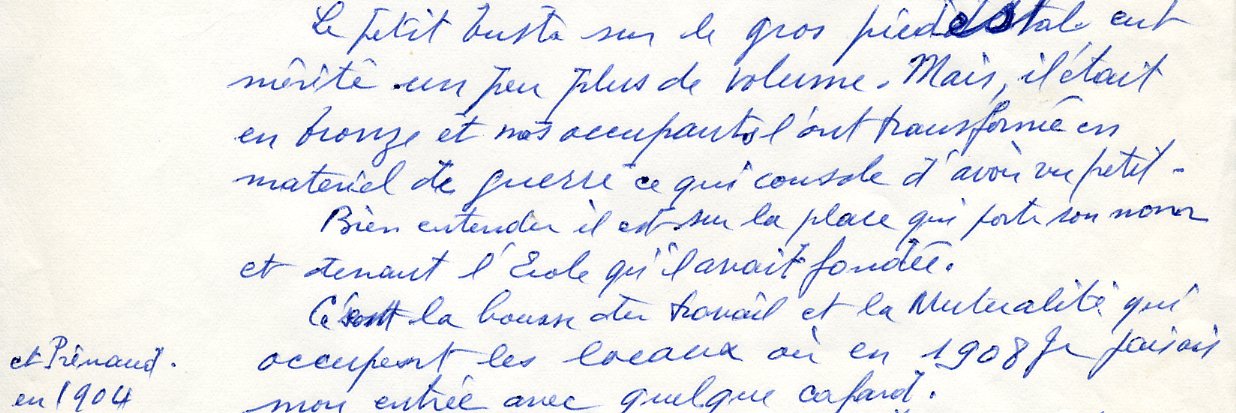 Le petit buste sur le gros piédestal eut
mérité un peu plus de volume. Mais, il était
en bronze et nos occupants l'ont transformé en
materiel de guerre ce qui console d'avoir vu petit -
Bien entendu il est sur la place qui porte son nom
et devant l'Ecole qu'il avait fondée.
C'est la bourse du travail et la Mutualité qui
occupent les locaux où en 1908 je faisais
et Prénaud.
en 1904
mon entrée avec quelque cafard.